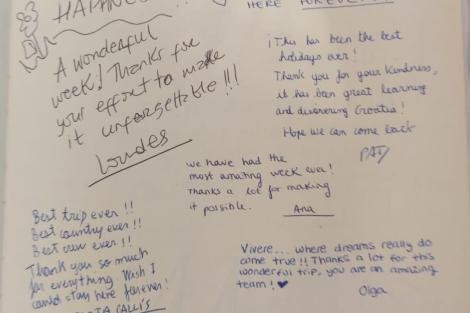 HAPPINES
HERE FOREVER
A wonderful
week! Thanks for
your effort to make
it unforgettable !!!
Loudes
¡This has been the best
holidays ever!
Thank you for your kindness,
it has been great learning
and discovering Croatia!
Hope we can come back
PATY
we have had the
most amazing week ever!
Thanks a lot for making
it possible.
Ana
Best trip ever !!
Best country ever !!
Best crew ever !!
Thank you so much
for everything. Wish I
could stay here forever!
CALLI'S
Vivere... where dreams really do
come true!! Thanks a lot for this
wonderful trip, you are an amazing
team! ♥
Olga